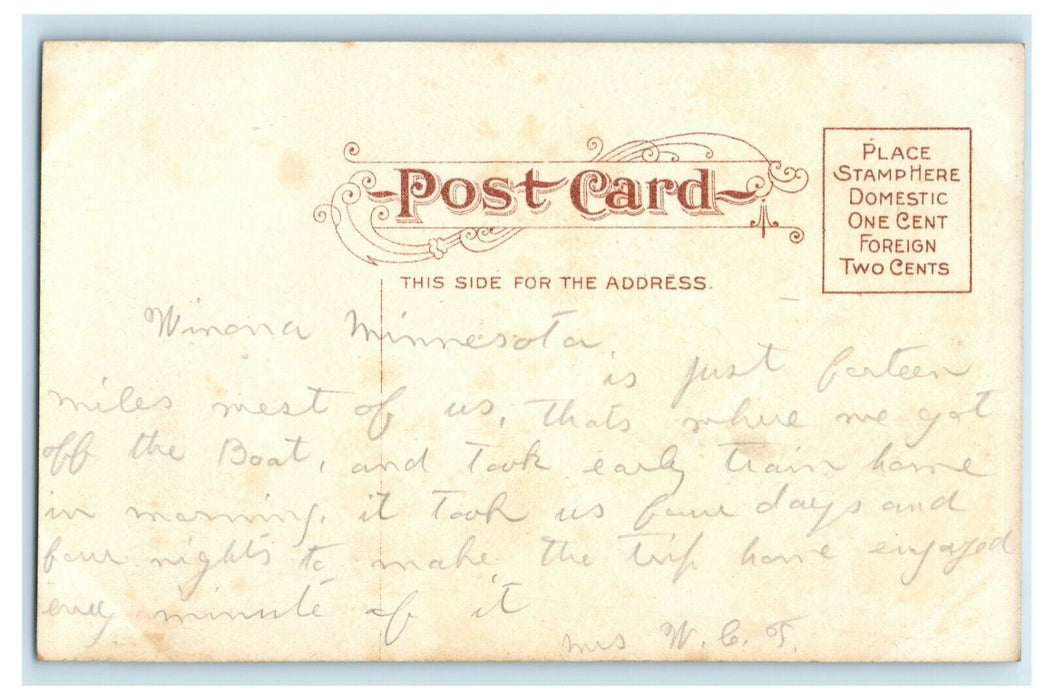 Post Card
THIS SIDE FOR THE ADDRESS.
PLACE
STAMP HERE
DOMESTIC
ONE CENT
FOREIGN
TWO CENTS
Winona Minnesota
is just forteen
miles west of us, thats where we got
off the Boat, and took early train home
in morning, it took us four days and
four nights to make the trip home enjoyed
every minute of it
Mrs W. C. T.